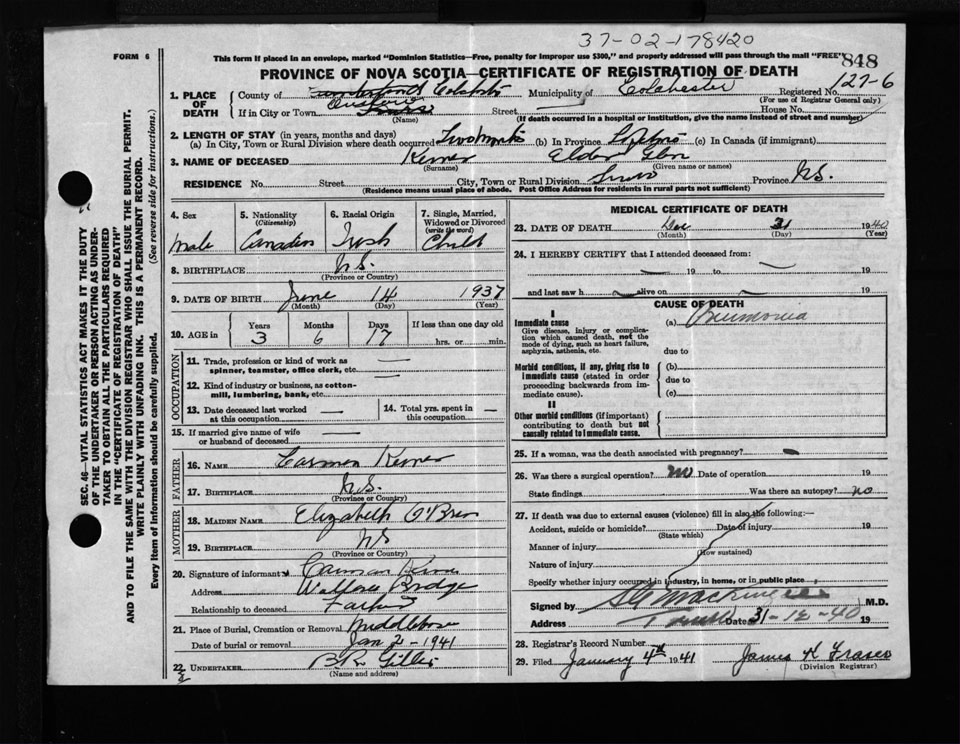 37-02-178420
FORM 6
This form if placed in an envelope, marked "Dominion Statistics—Free, penalty for improper use $300," and properly addressed will pass through the mail "FREE"
848
PROVINCE OF NOVA SCOTIA—CERTIFICATE OF REGISTRATION OF DEATH
127-6
1. PLACE OF DEATH
County of Cumberland Colchester Municipality of Colchester Registered No.
(For use of Registrar General only)
If in City or Town Truro Street House No.
(Name) (If death occurred in a hospital or institution, give the name instead of street and number)
2. LENGTH OF STAY (in years, months and days)
(a) In City, Town or Rural Division where death occurred Two Months (b) In Province (c) In Canada (if immigrant)
3. NAME OF DECEASED Elder
(Surname) (Given name or names)
RESIDENCE No. Street City, Town or Rural Division Truro Province N.S.
(Residence means usual place of abode. Post Office Address for residents in rural parts not sufficient)
4. Sex Male
5. Nationality (Citizenship) Canadian
6. Racial Origin Irish
7. Single, Married, Widowed or Divorced (write the word) Child
8. BIRTHPLACE N.S.
(Province or Country)
9. DATE OF BIRTH June 14 1937
(Month) (Day) (Year)
10. AGE in Years Months Days If less than one day old
3 6 17 hrs. or min.
OCCUPATION
11. Trade, profession or kind of work as spinner, teamster, office clerk, etc. —
12. Kind of industry or business, as cotton-mill, lumbering, bank, etc. —
13. Date deceased last worked at this occupation —
14. Total yrs. spent in this occupation —
15. If married give name of wife or husband of deceased —
FATHER
16. NAME Carmen
17. BIRTHPLACE N.S.
(Province or Country)
MOTHER
18. MAIDEN NAME Elizabeth O'Brien
19. BIRTHPLACE NS
(Province or Country)
20. Signature of informant Carman
Address Wallace Bridge
Relationship to deceased Father
21. Place of Burial, Cremation or Removal
Date of burial or removal Jan 2-1941
22. UNDERTAKER Gillis
(Name and address)
MEDICAL CERTIFICATE OF DEATH
23. DATE OF DEATH Dec 31 1940
(Month) (Day) (Year)
24. I HEREBY CERTIFY that I attended deceased from:
— 19 to — 19
and last saw h — alive on — 19
CAUSE OF DEATH
I
Immediate cause (a) Pneumonia
Give disease, injury or complication which caused death, not the mode of dying, such as heart failure, asphyxia, asthenia, etc.
due to
Morbid conditions, if any, giving rise to immediate cause (stated in order proceeding backwards from immediate cause).
(b)
due to
(c)
II
Other morbid conditions (if important) contributing to death but not causally related to immediate cause.
25. If a woman, was the death associated with pregnancy? -
26. Was there a surgical operation? No Date of operation 19
State findings Was there an autopsy? no
27. If death was due to external causes (violence) fill in also the following:—
Accident, suicide or homicide? Date of injury 19
(State which)
Manner of injury
(How sustained)
Nature of injury
Specify whether injury occurred in industry, in home, or in public place
Signed by M.D.
Address Date 31-12-40 19
28. Registrar's Record Number
29. Filed January 4th 1941 James H Fraser
(Division Registrar)
SEC. 46—VITAL STATISTICS ACT MAKES IT THE DUTY
OF THE UNDERTAKER OR PERSON ACTING AS UNDER-
TAKER TO OBTAIN ALL THE PARTICULARS REQUIRED
IN THE "CERTIFICATE OF REGISTRATION OF DEATH"
AND TO FILE THE SAME WITH THE DIVISION REGISTRAR WHO SHALL ISSUE THE BURIAL PERMIT.
WRITE PLAINLY WITH UNFADING INK. THIS IS A PERMANENT RECORD.
Every item of information should be carefully supplied. (See reverse side for instructions.)